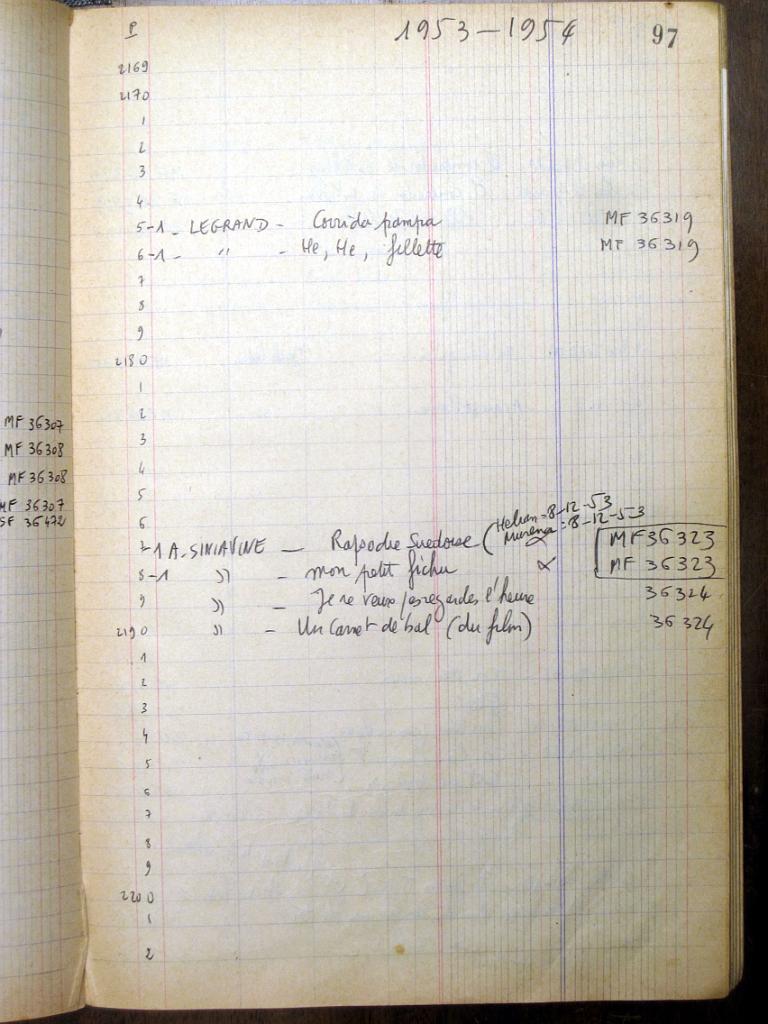 MF 36307
MF 36308
MF 36308
MF 36307
SF 36472
P 1953 - 1954 97
2169
2170
1
2
3
4
5-1 - LEGRAND - Corrida pampa MF 36319
6-1 - " - He, He, fillette MF 36319
7
8
9
2180
1
2
3
4
5
6
Helian = 8-12-53
Murena = 8-12-53
7-1 A. SINIAVINE - Rapsodie Suedoise ( MF36323
8-1 " - mon petit fichu MF 36323
9 " - Je ne veux pas regarder l'heure 36324
2190 " - Un Carnet de bal (du film) 36324
1
2
3
4
5
6
7
8
9
2200
1
2